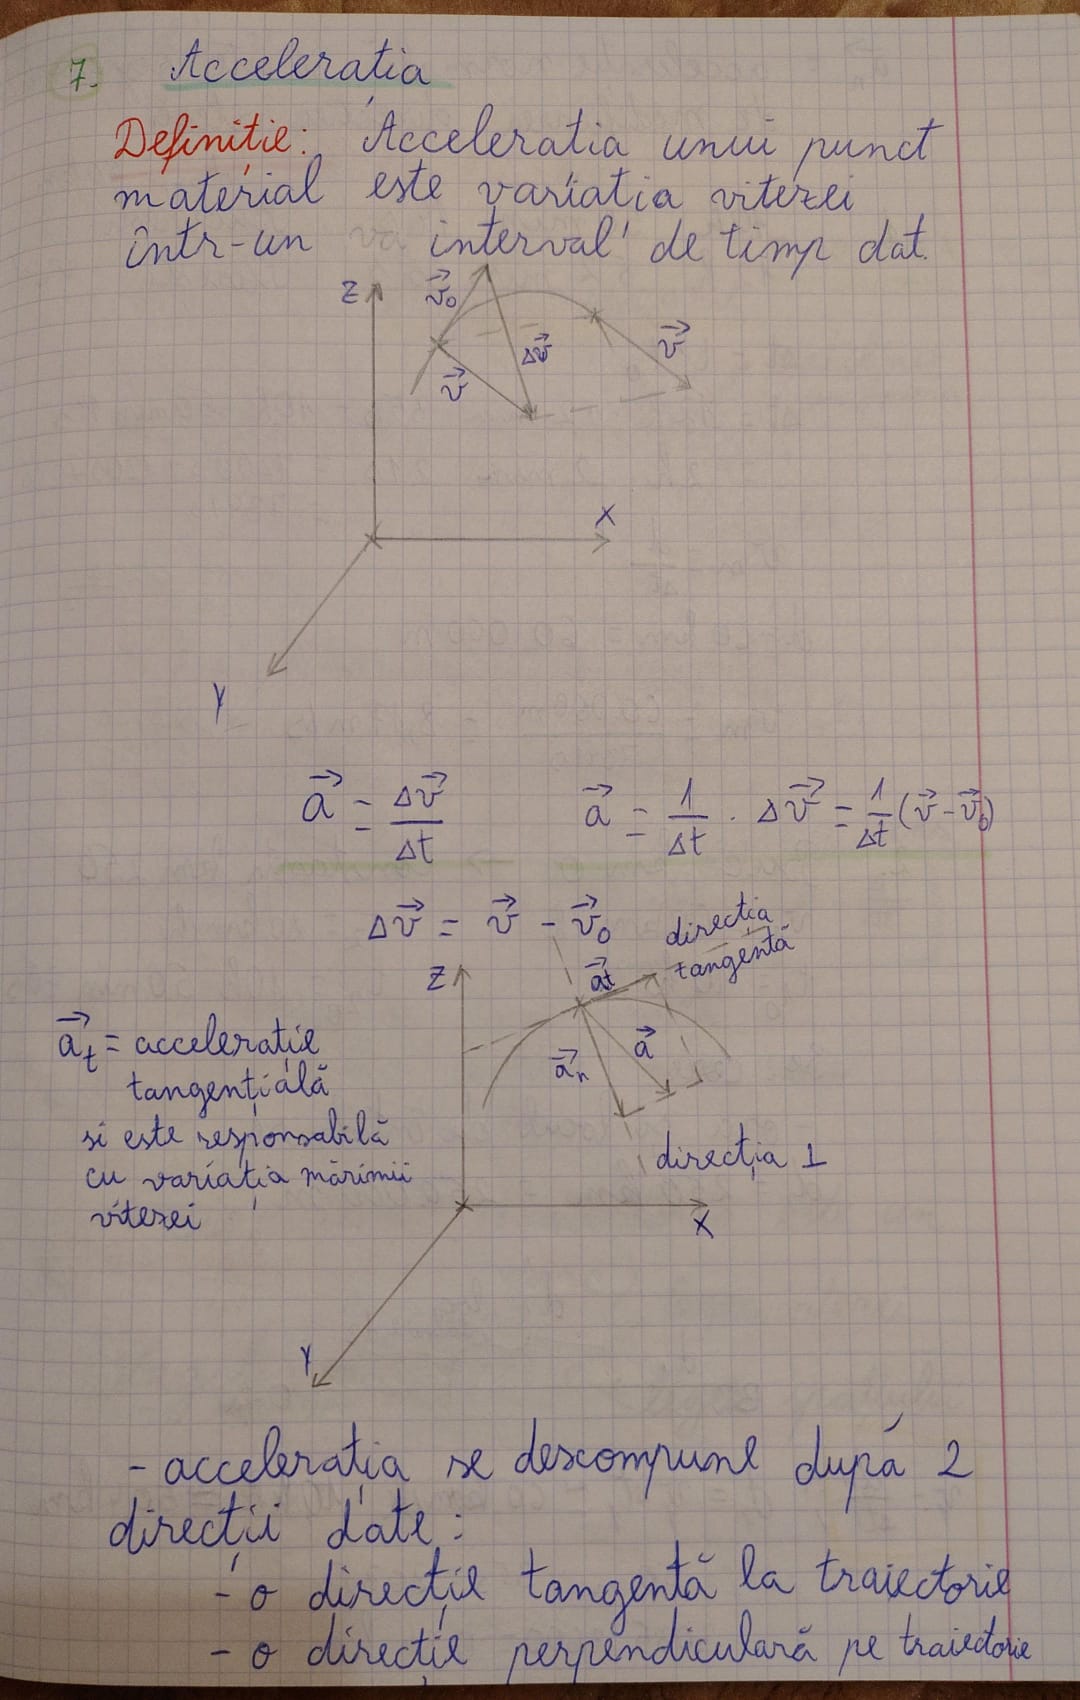 7. Accelerația
Definiție: Accelerația unui punct
material este variația vitezei
într-un interval de timp dat.
Z v⃗₀
Δv⃗ v⃗
v⃗
X
Y
a⃗ = Δv⃗/Δt a⃗ = 1/Δt · Δv⃗ = 1/Δt (v⃗ - v⃗₀)
Δv⃗ = v⃗ - v⃗₀
direcția
tangentă
Z a⃗t
a⃗n a⃗
a⃗t = accelerație
tangențială
si este responsabilă
cu variația mărimii
vitezei
direcția ⊥
X
Y
- accelerația se descompune după 2
direcții date:
- o direcție tangentă la traiectorie
- o direcție perpendiculară pe traiectorie